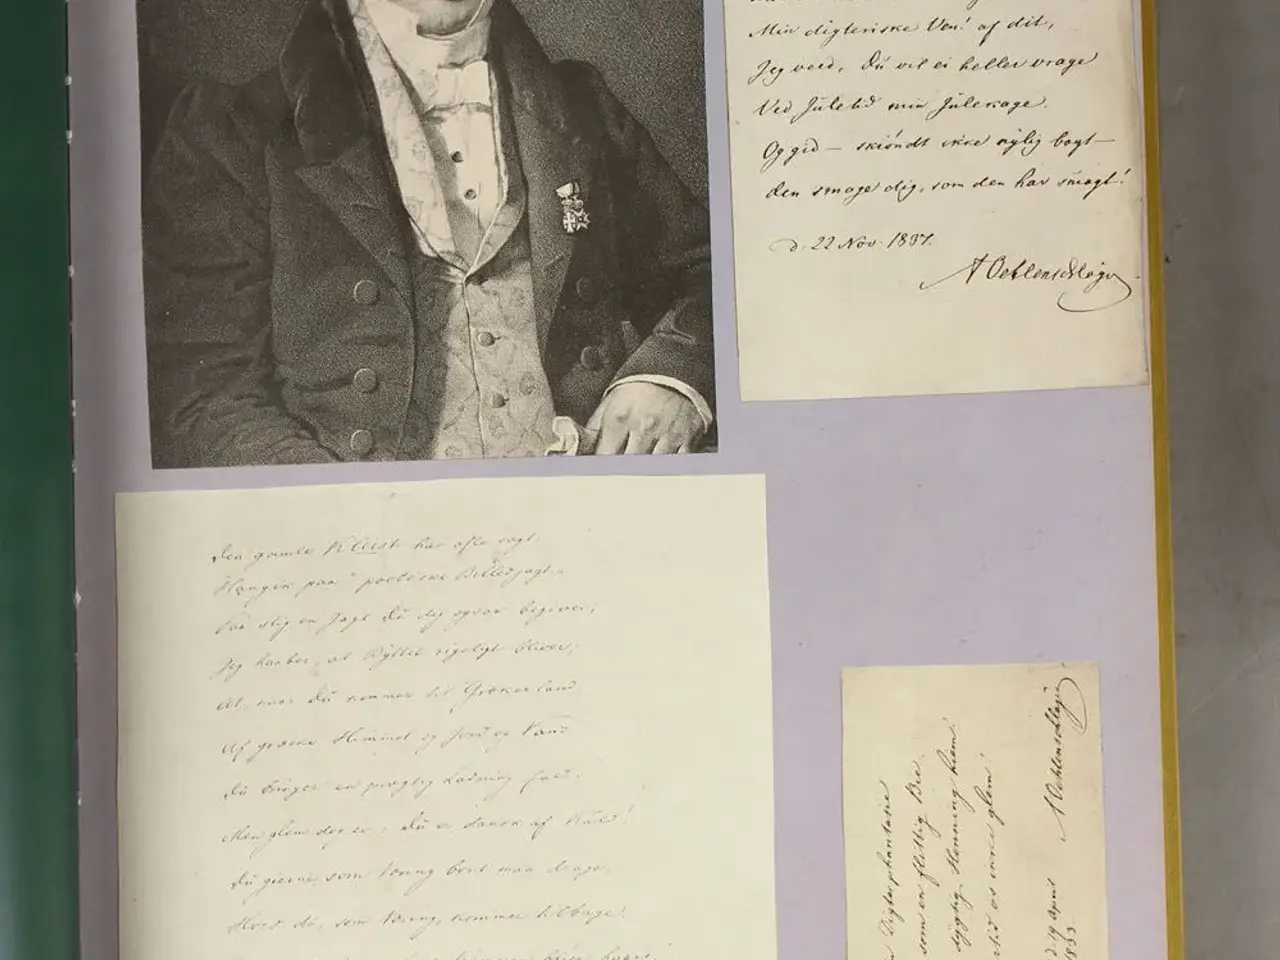 Min digteriske Ven! af dit,
Jeg veed, Du vil ei heller vrage
Ved Juletid min Julekage.
Og gid — skiøndt ikke nylig bagt —
den smage dig, som den har smagt!
d. 22 Nov. 1837.
A Oehlenschläger
Den gamle Kleist har ofte sagt:
Han gik paa "poetiske Billedjagt."
Paa slig en Jagt Du dig ogsaa begiver;
Jeg haaber, at Byttet rigeligt bliver;
At, naar Du kommer til Grækenland
Af græske Himmel og Jord og Vand
Du bringer en prægtig Ladning
Men glem dog ei, Du er dansk af
Du gierne som Konning bort maa drage,
som Viking, kommer tilbage.
Digterphantasie
som en flittig Bie
hygelig Stemning hiem!
os ikke glem!
d. 19 April
1833
A Oehlenschläger